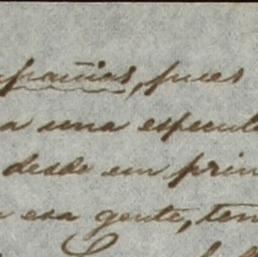 pañias, pues
a una especul
desde un prin
esa gente, ten